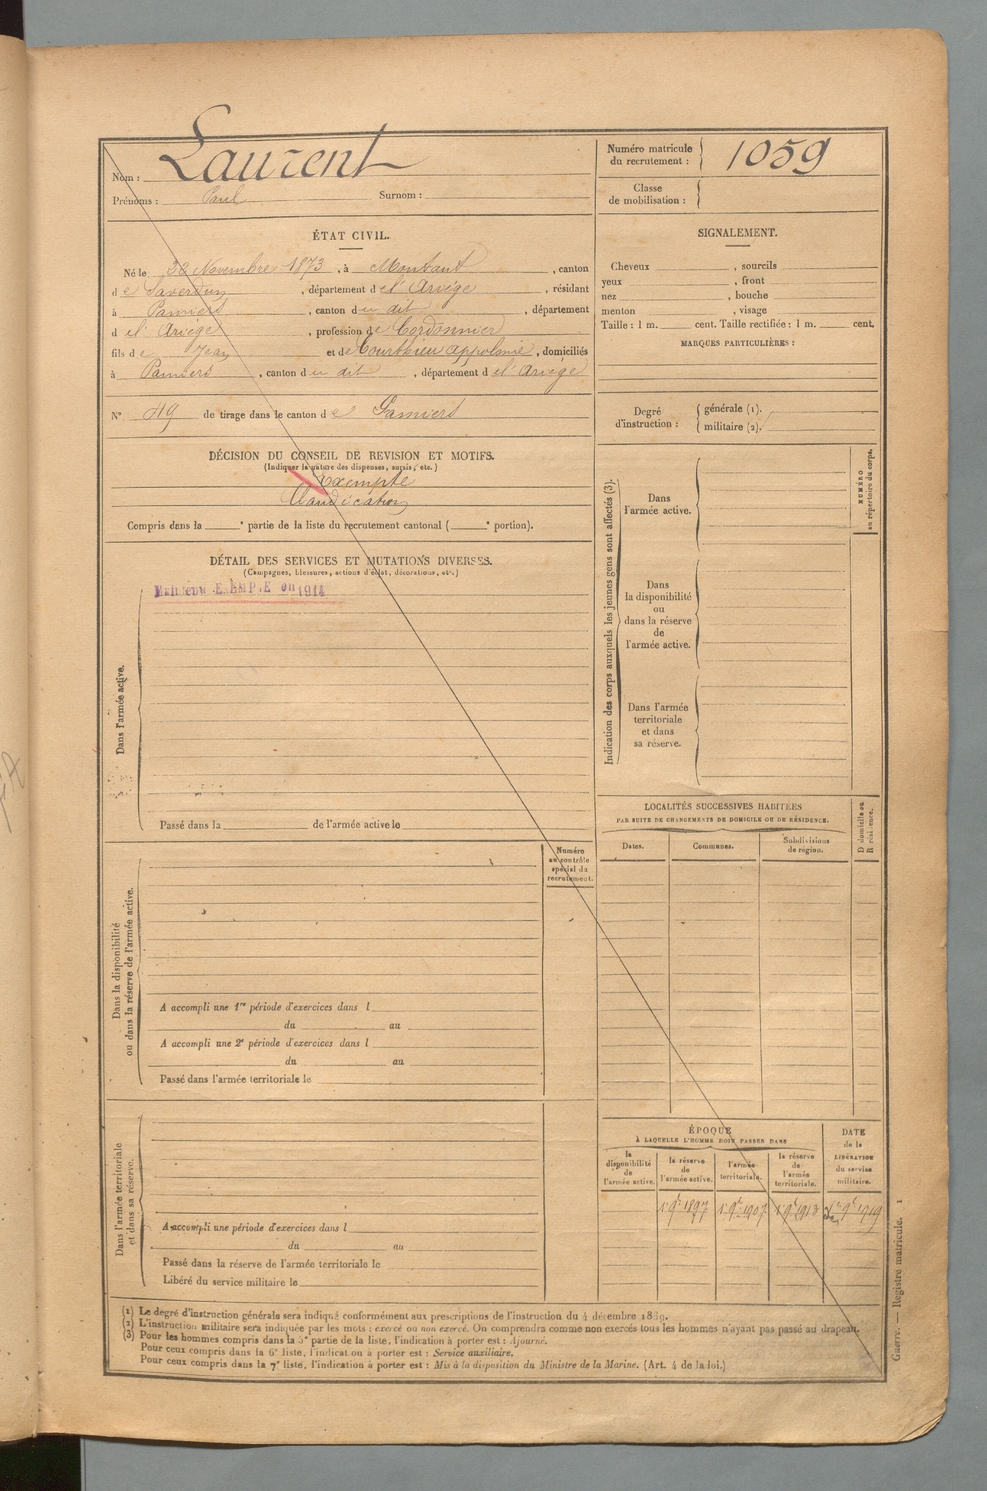 Nom : Laurent
Prénoms : Paul Surnom :
Numéro matricule du recrutement : 1059
Classe de mobilisation :
ÉTAT CIVIL.
Né le 22 Novembre 1873, à Montaut, canton
de Saverdun, département de l'Ariège, résidant
à Pamiers, canton du dit, département
de l'Ariège, profession de Cordonnier
fils de Jean et de Courthieu Appolonie, domiciliés
à Pamiers, canton du dit, département de l'Ariège
N° 49 de tirage dans le canton de Pamiers
SIGNALEMENT.
Cheveux , sourcils
yeux , front
nez , bouche
menton , visage
Taille : 1 m. cent. Taille rectifiée : 1 m. cent.
MARQUES PARTICULIÈRES :
Degré d'instruction : générale (1).
militaire (2).
DÉCISION DU CONSEIL DE REVISION ET MOTIFS.
(Indiquer la nature des dispenses, sursis, etc.)
Exempté
Claudication
Compris dans la e partie de la liste du recrutement cantonal ( e portion).
DÉTAIL DES SERVICES ET MUTATIONS DIVERSES.
(Campagnes, blessures, actions d'éclat, décorations, etc.)
Maintenu EXEMPTÉ en 1914
Dans l'armée active.
Passé dans la de l'armée active le
Indication des corps auxquels les jeunes gens sont affectés (3).
Dans l'armée active.
Dans la disponibilité ou dans la réserve de l'armée active.
Dans l'armée territoriale et dans sa réserve.
NUMÉRO au répertoire du corps.
LOCALITÉS SUCCESSIVES HABITÉES
PAR SUITE DE CHANGEMENTS DE DOMICILE OU DE RÉSIDENCE.
Dates. Communes. Subdivisions de région. D domicile ou R résidence.
Numéro au contrôle spécial du recrutement.
Dans la disponibilité ou dans la réserve de l'armée active.
A accompli une 1re période d'exercices dans l
du au
A accompli une 2e période d'exercices dans l
du au
Passé dans l'armée territoriale le
Dans l'armée territoriale et dans sa réserve.
A accompli une période d'exercices dans l
du au
Passé dans la réserve de l'armée territoriale le
Libéré du service militaire le
ÉPOQUE
À LAQUELLE L'HOMME DOIT PASSER DANS
la disponibilité de l'armée active.
la réserve de l'armée active.
l'armée territoriale.
la réserve de l'armée territoriale.
DATE de la LIBÉRATION du service militaire.
1er 9bre 1897 1er 9bre 1907 1er 9bre 1913 1er 9bre 1919
(1) Le degré d'instruction générale sera indiqué conformément aux prescriptions de l'instruction du 4 décembre 1889.
(2) L'instruction militaire sera indiquée par les mots : exercé ou non exercé. On comprendra comme non exercés tous les hommes n'ayant pas passé au drapeau.
(3) Pour les hommes compris dans la 5e partie de la liste, l'indication à porter est : Ajourné.
Pour ceux compris dans la 6e liste, l'indication à porter est : Service auxiliaire.
Pour ceux compris dans la 7e liste, l'indication à porter est : Mis à la disposition du Ministre de la Marine. (Art. 4 de la loi.)
Guerre. — Registre matricule. 1